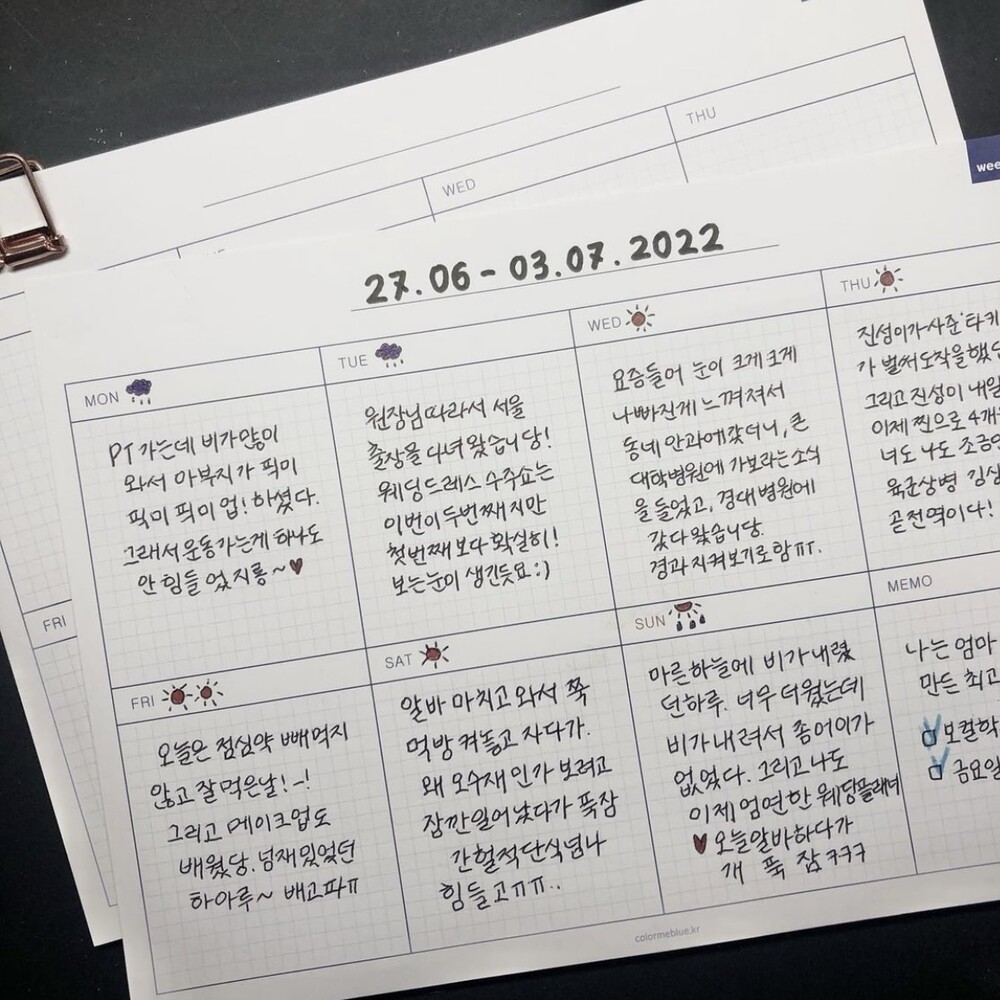 THU
WED
wee
27.06 - 03.07.2022
MON
PT 가는데 비가 많이
와서 아부지가 픽미
픽미 픽미 업! 하셨다.
그래서 운동가는게 하나도
안 힘들었지롱~♥
TUE
원장님 따라서 서울
출장을 다녀왔습니당!
웨딩드레스 수주쇼는
이번이 두번째지만
첫번째보다 확실히!
보는 눈이 생긴듯요:)
WED
요즘들어 눈이 크게 크게
나빠진게 느껴져서
동네 안과에 갔더니, 큰
대학병원에 가보라는 소식
을 들었고, 경대병원에
갔다왔습니당.
경과 지켜보기로 함ㅠㅜ.
THU
진성이가 사준 '타키
가 벌써 도착을 했
그리고 진성이 내일
이제 찐으로 4개
너도 나도 조금만
육군상병 김상
곧 전역이다!
FRI
FRI
오늘은 점심약 빼먹지
않고 잘 먹은날!-!
그리고 메이크업도
배웠당. 넘 재밌었던
하아루~ 배고파ㅠ
SAT
알바 마치고 와서 쭉
먹방 켜놓고 자다가.
왜 오수재인가 보려고
잠깐 일어났다가 푹잠
간헐적단식 넘나
힘들고ㅠㅠ..
SUN
마른 하늘에 비가 내렸
던하루. 너무 더웠는데
비가 내려서 종이가
없었다. 그리고 나도
이제 엄연한 웨딩플래너
♥오늘 알바하다가
개 푹 잠ㅋㅋㅋ
MEMO
나는 엄마
만든 최고
보컬학
금요일
colormeblue.kr